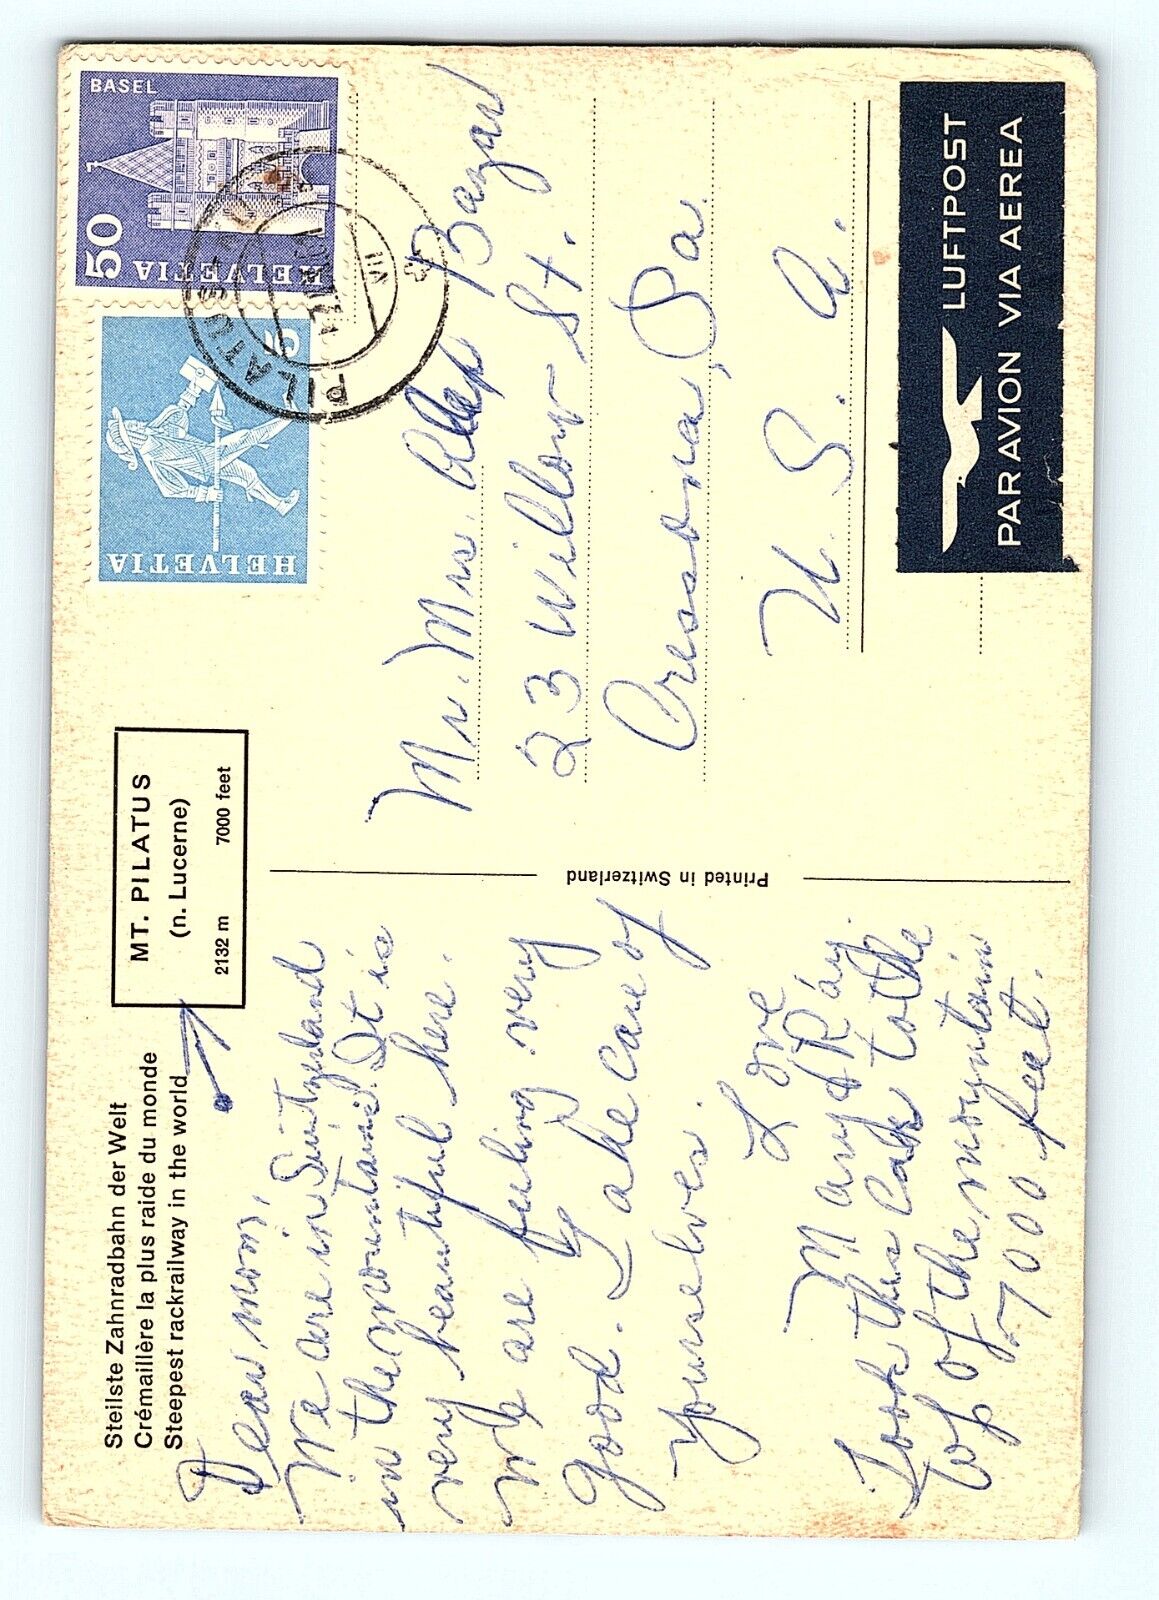 Steilste Zahnradbahn der Welt
Crémaillère la plus raide du monde
Steepest rackrailway in the world
MT. PILATUS
(n. Lucerne)
2132 m 7000 feet
Dear mom,
We are in Switzerland
in the mountains. It is
very beautiful here.
We are feeling very
good. Take care of
yourselves.
Love
Mary & Ray.
Took this Car to the
top of the mountain
7000 feet.
Printed in Switzerland
BASEL
7
50
HELVETIA
5
HELVETIA
PILATUS
VII
Mr. Mrs. Bazar
23 Willow St.
Cressona, Pa
U. S. A.
LUFTPOST
PAR AVION VIA AEREA